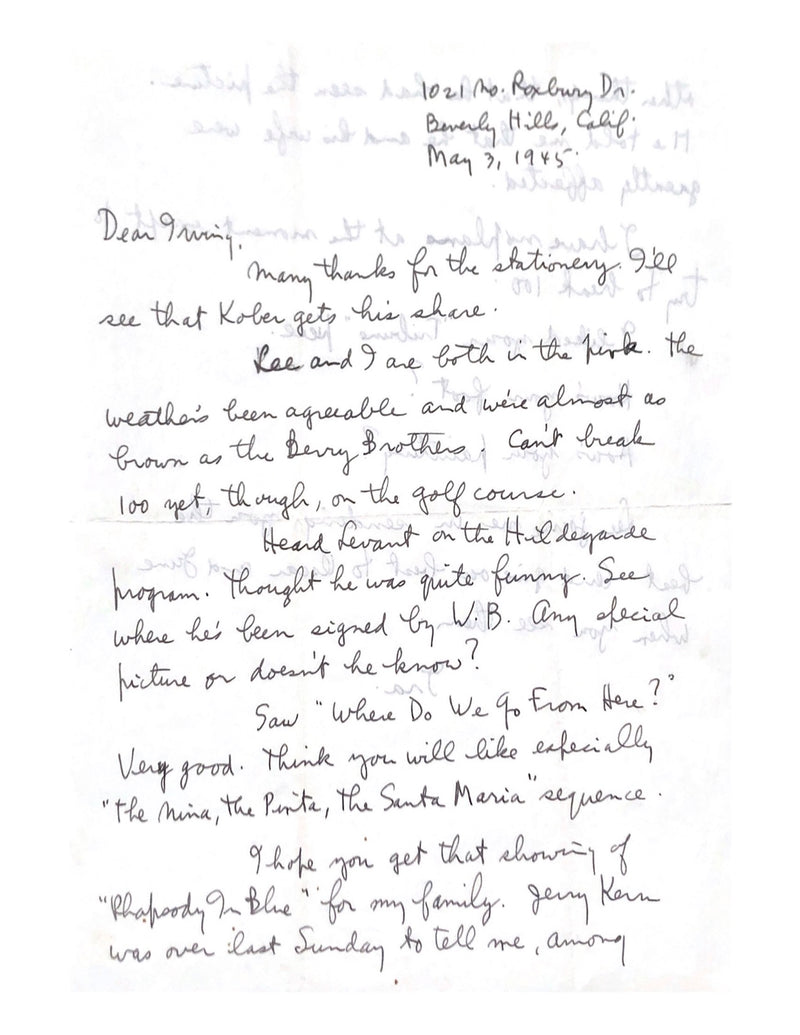 1021 No. Roxbury Dr.
Beverly Hills, Calif.
May 3, 1945.
Dear Irving,
Many thanks for the stationery. I'll
see that Kober gets his share.
Lee and I are both in the pink. The
weather's been agreeable and we're almost as
brown as the Berry Brothers. Can't break
100 yet, though, on the golf course.
Heard Levant on the Hildegarde
program. Thought he was quite funny. See
where he's been signed by W.B. Any special
picture or doesn't he know?
Saw "Where Do We Go From Here?"
Very good. Think you will like especially
"The Nina, The Pinta, The Santa Maria" sequence.
I hope you get that showing of
"Rhapsody In Blue" for my family. Jerry Kern
was over last Sunday to tell me, among